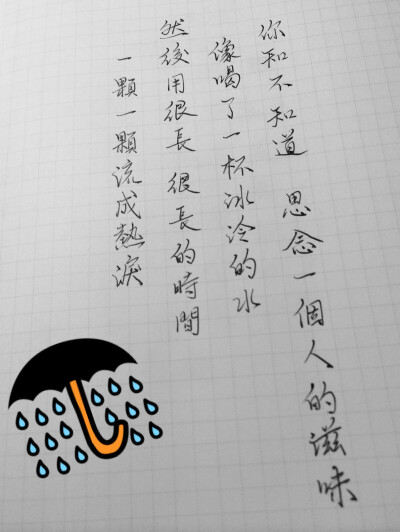 你知不知道 思念一個人的滋味
像喝了一杯冰冷的水
然後用很長 很長的時間
一顆一顆流成熱淚